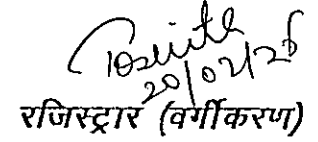 20/02/26
रजिस्ट्रार (वर्गीकरण)